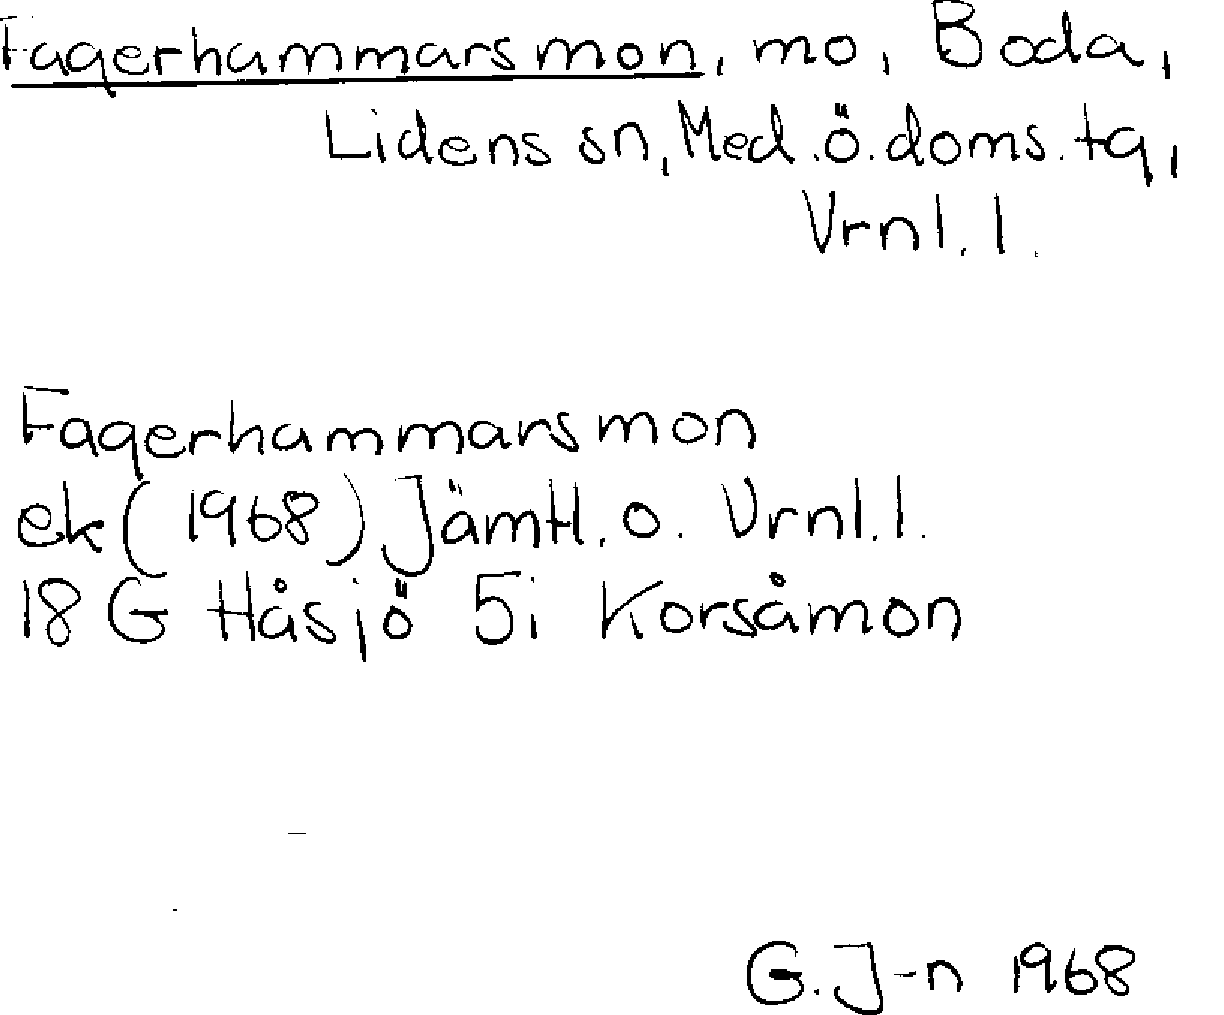 Fagerhammarsmon, mo, Boda,
Lidens sn, Med.ö.doms.tg,
Vrnl.l.
Fagerhammarsmon
ek (1968) Jämtl.o. Vrnl.l.
18 G Håsjö 5i Korsåmon
G.J-n 1968